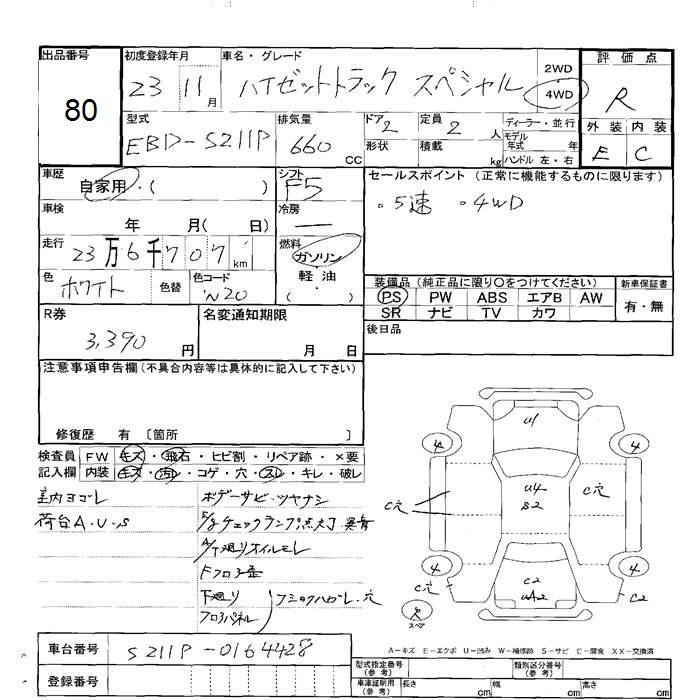 出品番号
80
初度登録年月
23年 11月
車名・グレード
ハイゼットトラック スペシャル
2WD
4WD
評価点
R
外装 内装
E C
型式
EBD-S211P
排気量
660 CC
ドア 2
形状
定員 2 人
積載 kg
ディーラー・並行
モデル年式 年
ハンドル 左・右
車歴
自家用・( )
シフト
F5
セールスポイント (正常に機能するものに限ります)
・5速 ・4WD
車検
年 月( 日)
冷房
―
走行
23万6千707km
燃料
ガソリン
軽・油
( )
色
ホワイト
色替
色コード
W20
装備品 (純正品に限り○をつけてください)
PS PW ABS エアB AW
SR ナビ TV カワ
新車保証書
有・無
R券
3,390 円
名変通知期限
月 日
後日品
注意事項申告欄(不具合内容等は具体的に記入して下さい)
修復歴 有 〔箇所 〕
検査員 FW キズ・飛石・ヒビ割・リペア跡・×要
記入欄 内装 キズ・汚れ・コゲ・穴・スレ・キレ・破レ
室内ヨゴレ
荷台A・U・S
ボデーサビ・ツヤナシ
E/gチェックランプ点灯 異音
下廻りオイルモレ
下廻り
フロアパネル
ハガレ・穴
U1
4 4
C穴
U4
S2
C穴
4 4
C穴
C2
UA2
C2
R
スペア
A-キズ E-エクボ U-凹み W-補修跡 S-サビ C-腐食 XX-交換済
車台番号
S211P-0164428
登録番号
型式指定番号(参考)
類別区分番号(参考)
車庫証明用(参考) 長さ cm 幅 cm 高さ cm